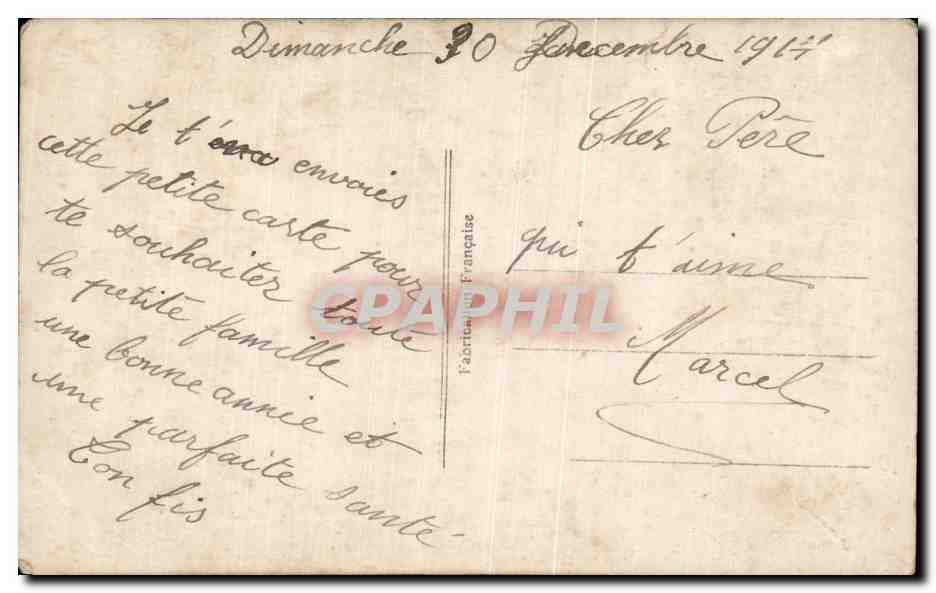 Dimanche 30 Decembre 1917
Cher Père
Je t' envoies
cette petite carte pour
te souhaiter toute
la petite famille
une bonne annie et
une parfaite santé
Ton fis
qui t'aime
Marcel
Fabrication Française
CPAPHIL